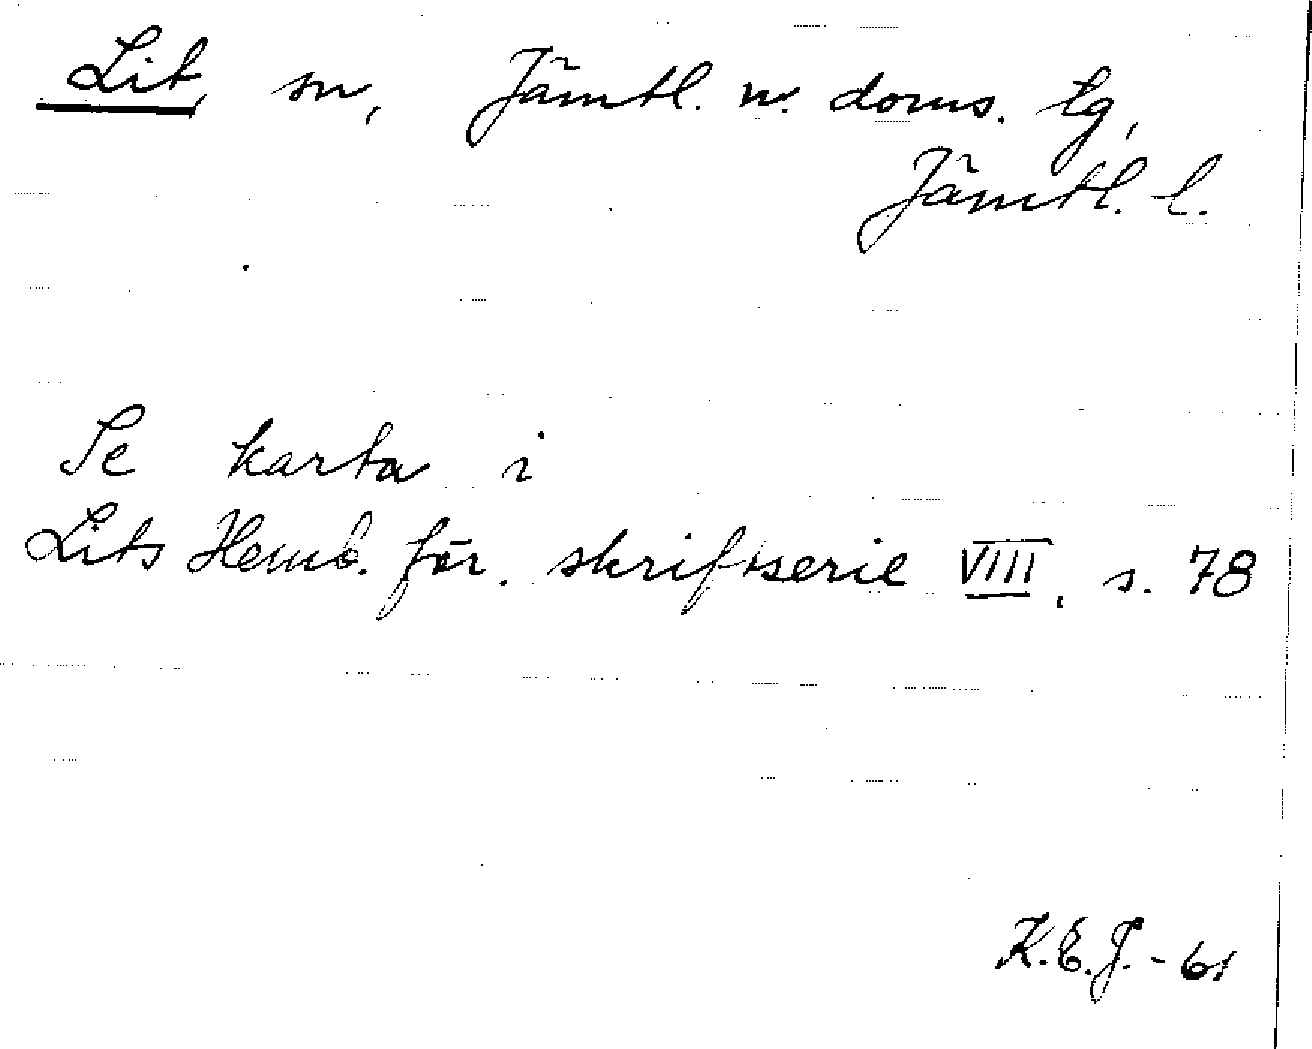 Lit, sn, Jämtl. n. doms. lg,
Jämtl. l.
Se karta i
Lits Hemb. för. skriftserie VIII, s. 78
K.E.J. - 61